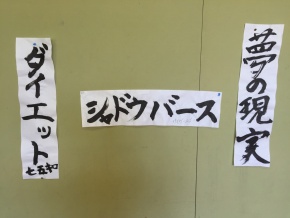 夢の現実
シャドウバース
ダイエット
七五和